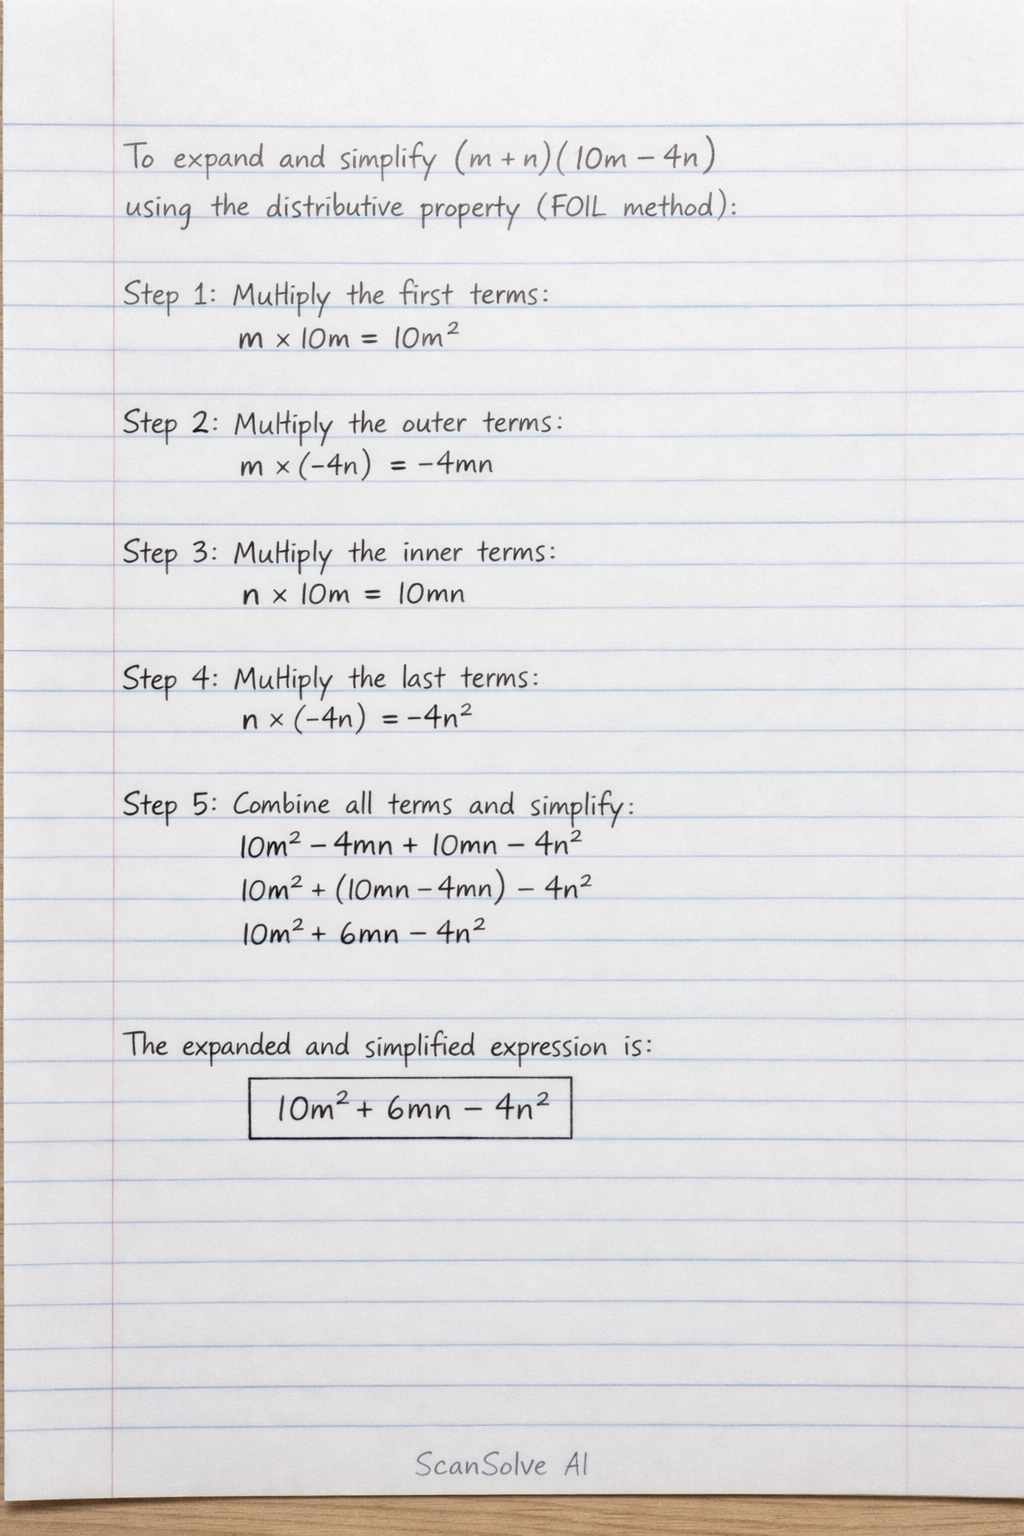 To expand and simplify (m + n)(10m − 4n)
using the distributive property (FOIL method):
Step 1: Multiply the first terms:
m × 10m = 10m²
Step 2: Multiply the outer terms:
m × (−4n) = −4mn
Step 3: Multiply the inner terms:
n × 10m = 10mn
Step 4: Multiply the last terms:
n × (−4n) = −4n²
Step 5: Combine all terms and simplify:
10m² − 4mn + 10mn − 4n²
10m² + (10mn − 4mn) − 4n²
10m² + 6mn − 4n²
The expanded and simplified expression is:
10m² + 6mn − 4n²
ScanSolve AI